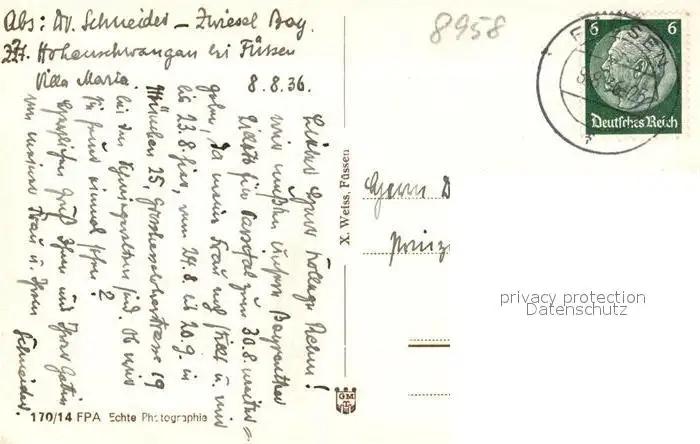 Abs: Dr. Schneider – Zwiesel Bay.
ZZt. Hohenschwangau bei Füssen
Villa Maria.
8.8.36.
Lieber Herr Kollege Rehm!
wir mußten unsere Bayreuther
Billets für Parsifal zum 30.8. weiter-
geben, da meine Frau noch stillt u. wir
bis 23.8. hier, vom 24.8. bis 20.9. in
München 25, Grosshesseloherstrasse 19
bei den Schwiegereltern sind. Ob wir
Sie heuer einmal sehen?
Herzlichen Gruß Ihnen und Ihrer Gattin
von meiner Frau u. Ihrem
Schneider.
170/14 FPA Echte Photographie
X. Weiss, Füssen
GM
8958
FÜSSEN
6 6
Deutsches Reich
Herrn D
Prinz
privacy protection
Datenschutz